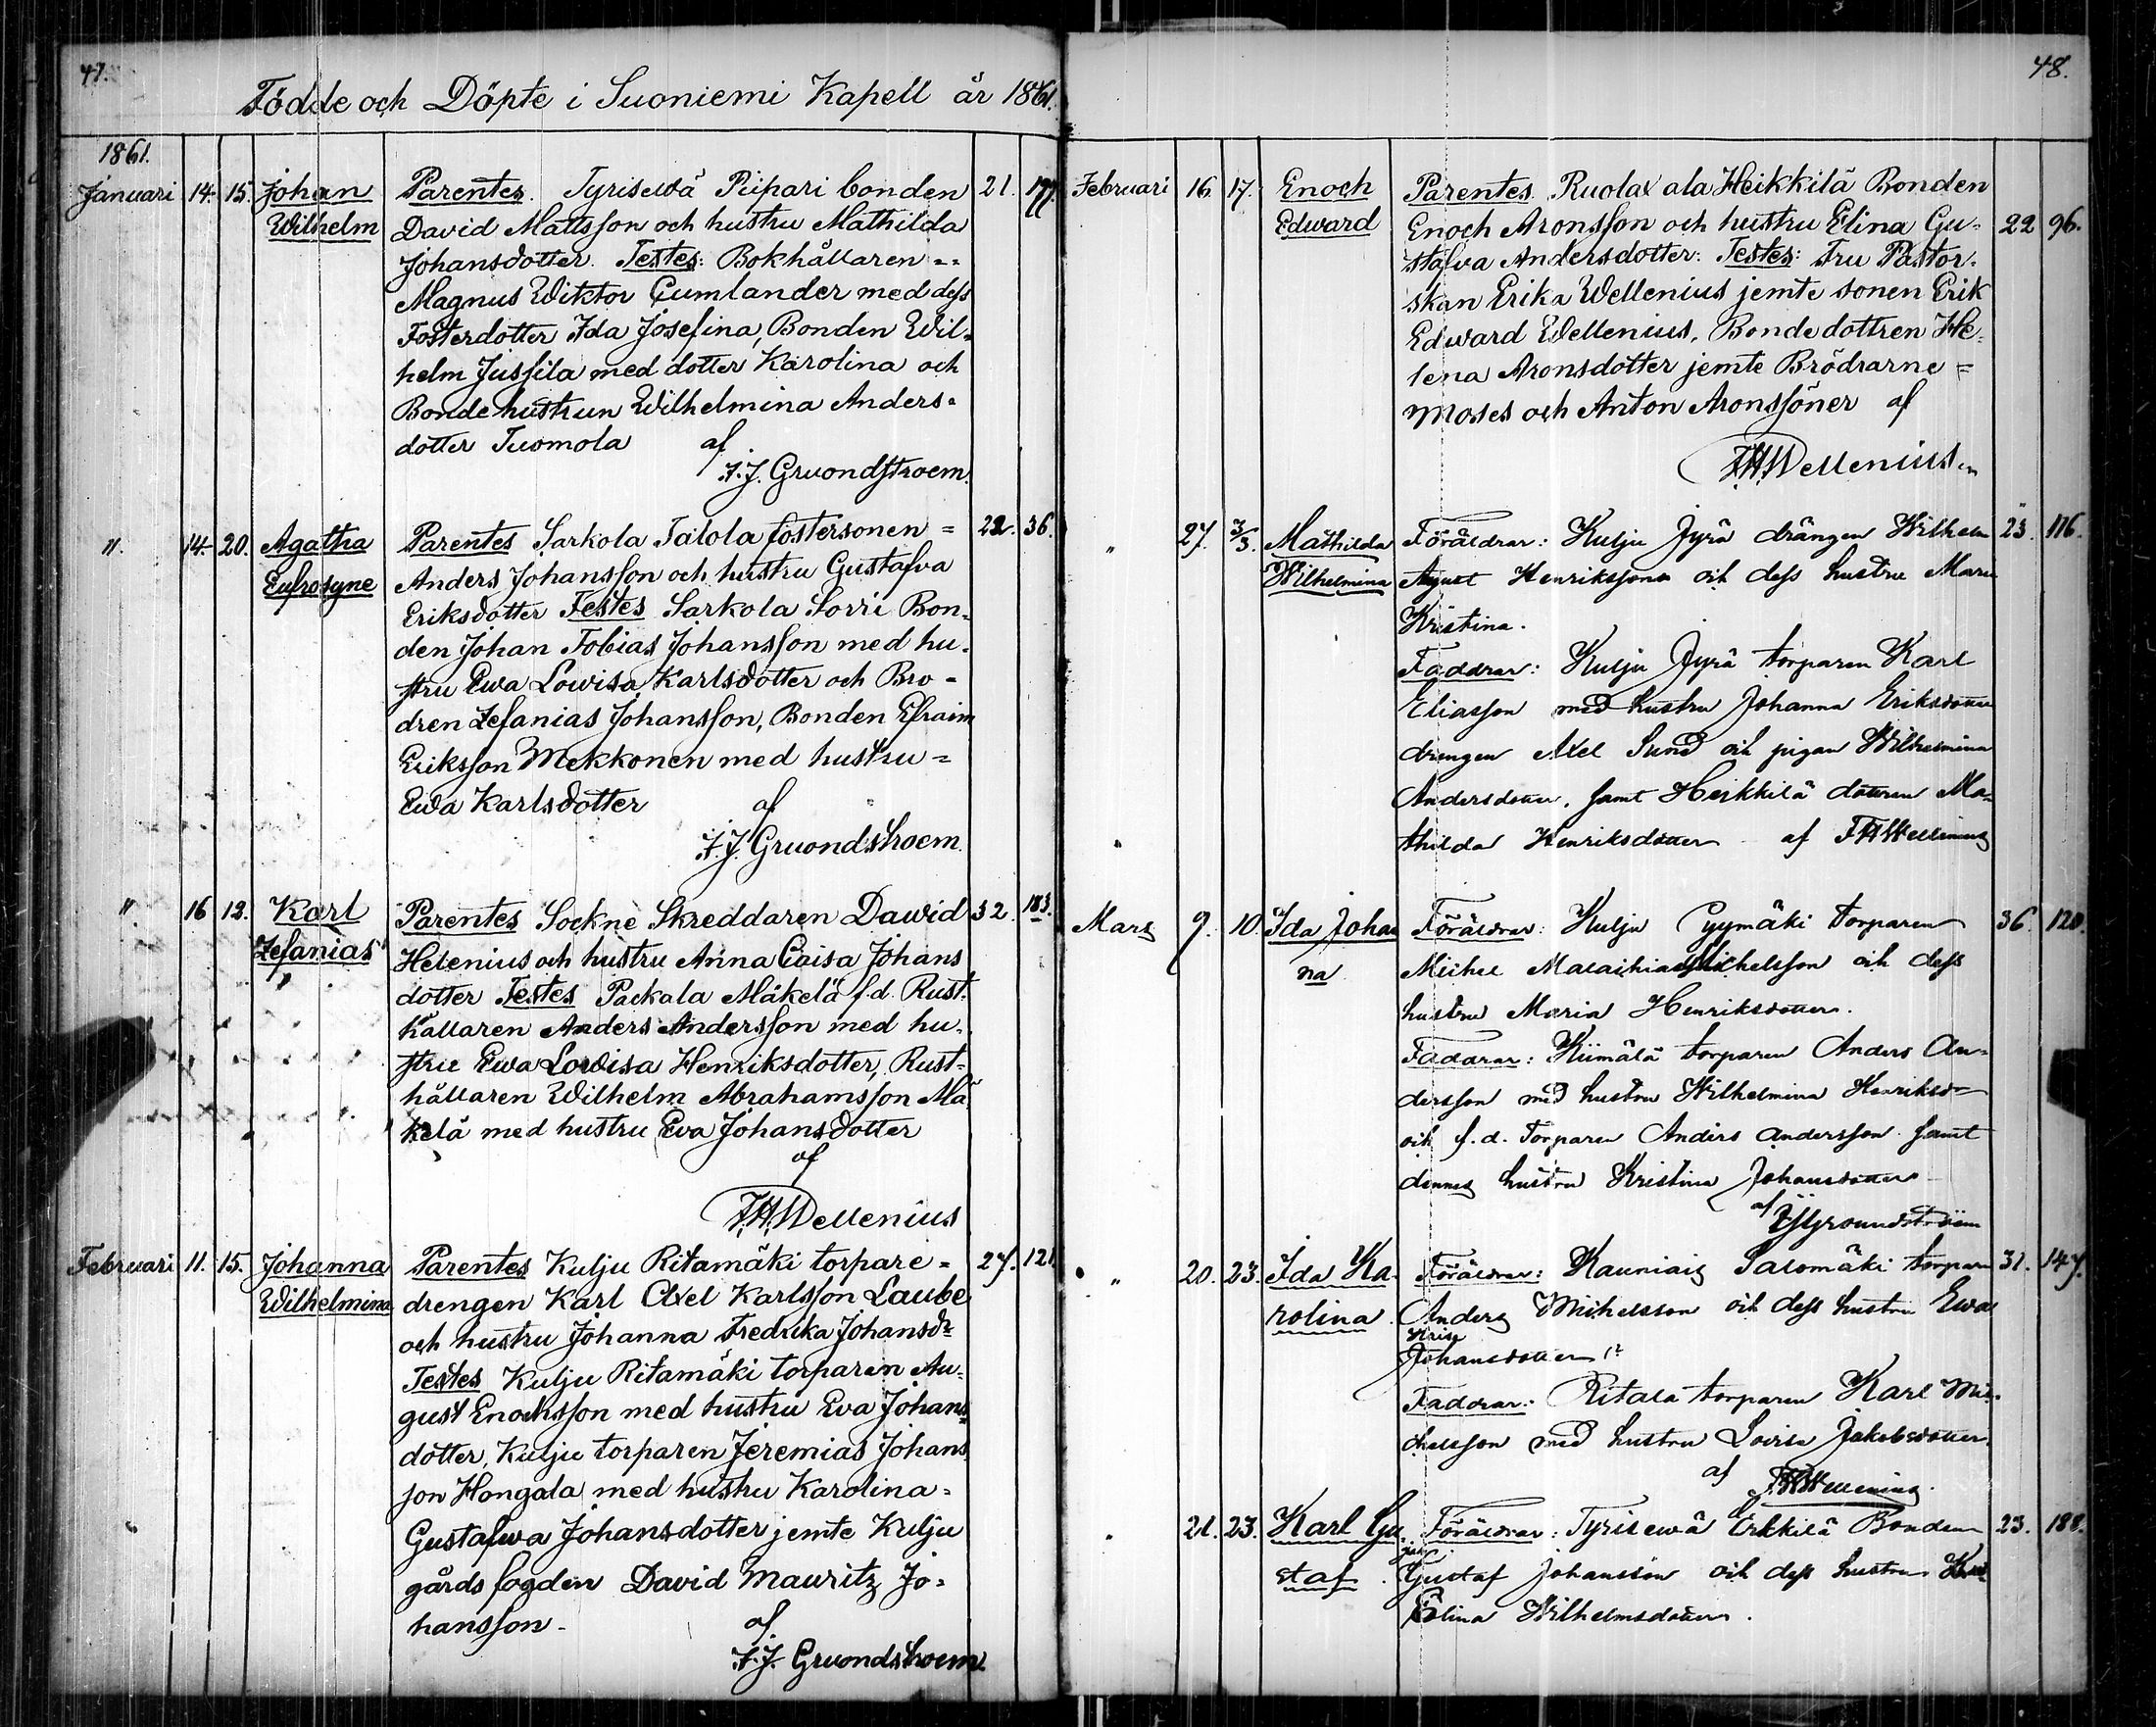 47.
Födde och Döpte i Suoniemi Kapell år 1861.
1861.
Januari 14. 15. Johan Parentes. Tyrisewä Piipari bonden 21. 177.
Wilhelm David Mattsson och hustru Mathilda
Johansdotter. Testes: Bokhållaren =
Magnus Wiktor Gumlander med dess
Fosterdotter Ida Josefina, Bonden Wil-
helm Jussila med dotter Karolina och
Bonde hustrun Wilhelmina Anders-
dotter Tuomola af
F.J. Gruondstroem.
" 14. 20. Agatha Parentes Sarkola Talola fostersonen = 22. 36.
Eufrosyne Anders Johansson och hustru Gustafva
Eriksdotter Testes Sarkola Sorri Bon-
den Johan Tobias Johansson med hu-
stru Ewa Lowisa Karlsdotter och Bro-
dren Zefanias Johansson, Bonden Efraim
Eriksson Mekkonen med hustru =
Ewa Karlsdotter af
F.J. Gruondstroem.
" 16 12. Karl Parentes Sockne Skreddaren Dawid 32. 183.
Zefanias Helenius och hustru Anna Caisa Johans
dotter Testes Packala Mäkelä f.d. Rust-
hållaren Anders Andersson med hu-
stru Ewa Lowisa Henriksdotter, Rust-
hållaren Wilhelm Abrahamsson Mä
kelä med hustru Eva Johansdotter
af
F.H. Wellenius
Februari 11. 15. Johanna Parentes Kulju Ritamäki torpare = 27. 121.
Wilhelmina drengen Karl Axel Karlsson Laube
och hustru Johanna Fredrika Johansdr
Testes Kulju Ritamäki torparen Au-
gust Enochsson med hustru Eva Johans-
dotter, Kulju torparen Jeremias Johans
son Hongala med hustru Karolina =
Gustafwa Johansdotter jemte Kulju
gårds fogden David Mauritz Jo-
hansson. af
F.J. Gruondstroem.
48.
Februari 16. 17. Enoch Parentes. Ruolax ala Heikkilä Bonden
Edward Enoch Aronsson och hustru Elina Gu- 22 96.
stafva Andersdotter: Testes: Fru Pastor-
skan Erika Wellenius jemte sonen Erik
Edward Wellenius, Bonde dottren He-
lena Aronsdotter jemte Brödrarne =
Moses och Anton Aronssöner af
F.H. Wellenius
" 27. 3/3. Mathilda Föräldrar: Kulju Jyrä drängen Wilhelm 23. 116.
Wilhelmina August Henriksson och dess hustru Maria
Kristina.
Faddrar: Kulju Jyrä torparen Karl
Eliasson med hustru Johanna Eriksdotter
drengen Axel Sund och pigan Wilhelmina
Andersdotter, samt Heikkilä dottren Ma-
thilda Henriksdotter af F H Wellenius
Mars 9. 10. Ida Johan Föräldrar: Kulju Pyymäki torparen 36. 120.
na Michel Malachias Michelsson och dess
hustru Maria Henriksdotter.
Faddrar: Kiimälä torparen Anders An-
dersson med hustru Wilhelmina Henriksd=
och f.d. torparen Anders Andersson samt
dennes hustru Kristina Johansdotter
af F J Gruondström
" 20. 23. Ida Ka- Föräldrar: Kauniais Salomäki torparen 31. 147.
rolina Anders Michelsson och dess hustru Ewa
Kris
Johansdotter
Faddrar: Ritala torparen Karl Mi-
chelsson med hustru Lovisa Jakobsdotter
af F H Wellenius.
" 21. 23. Karl Gu- Föräldrar: Tyrisewä Erkkilä Bonden 23. 188.
staf Gustaf Johansson och dess hustru
Elina Wilhelmsdotter.